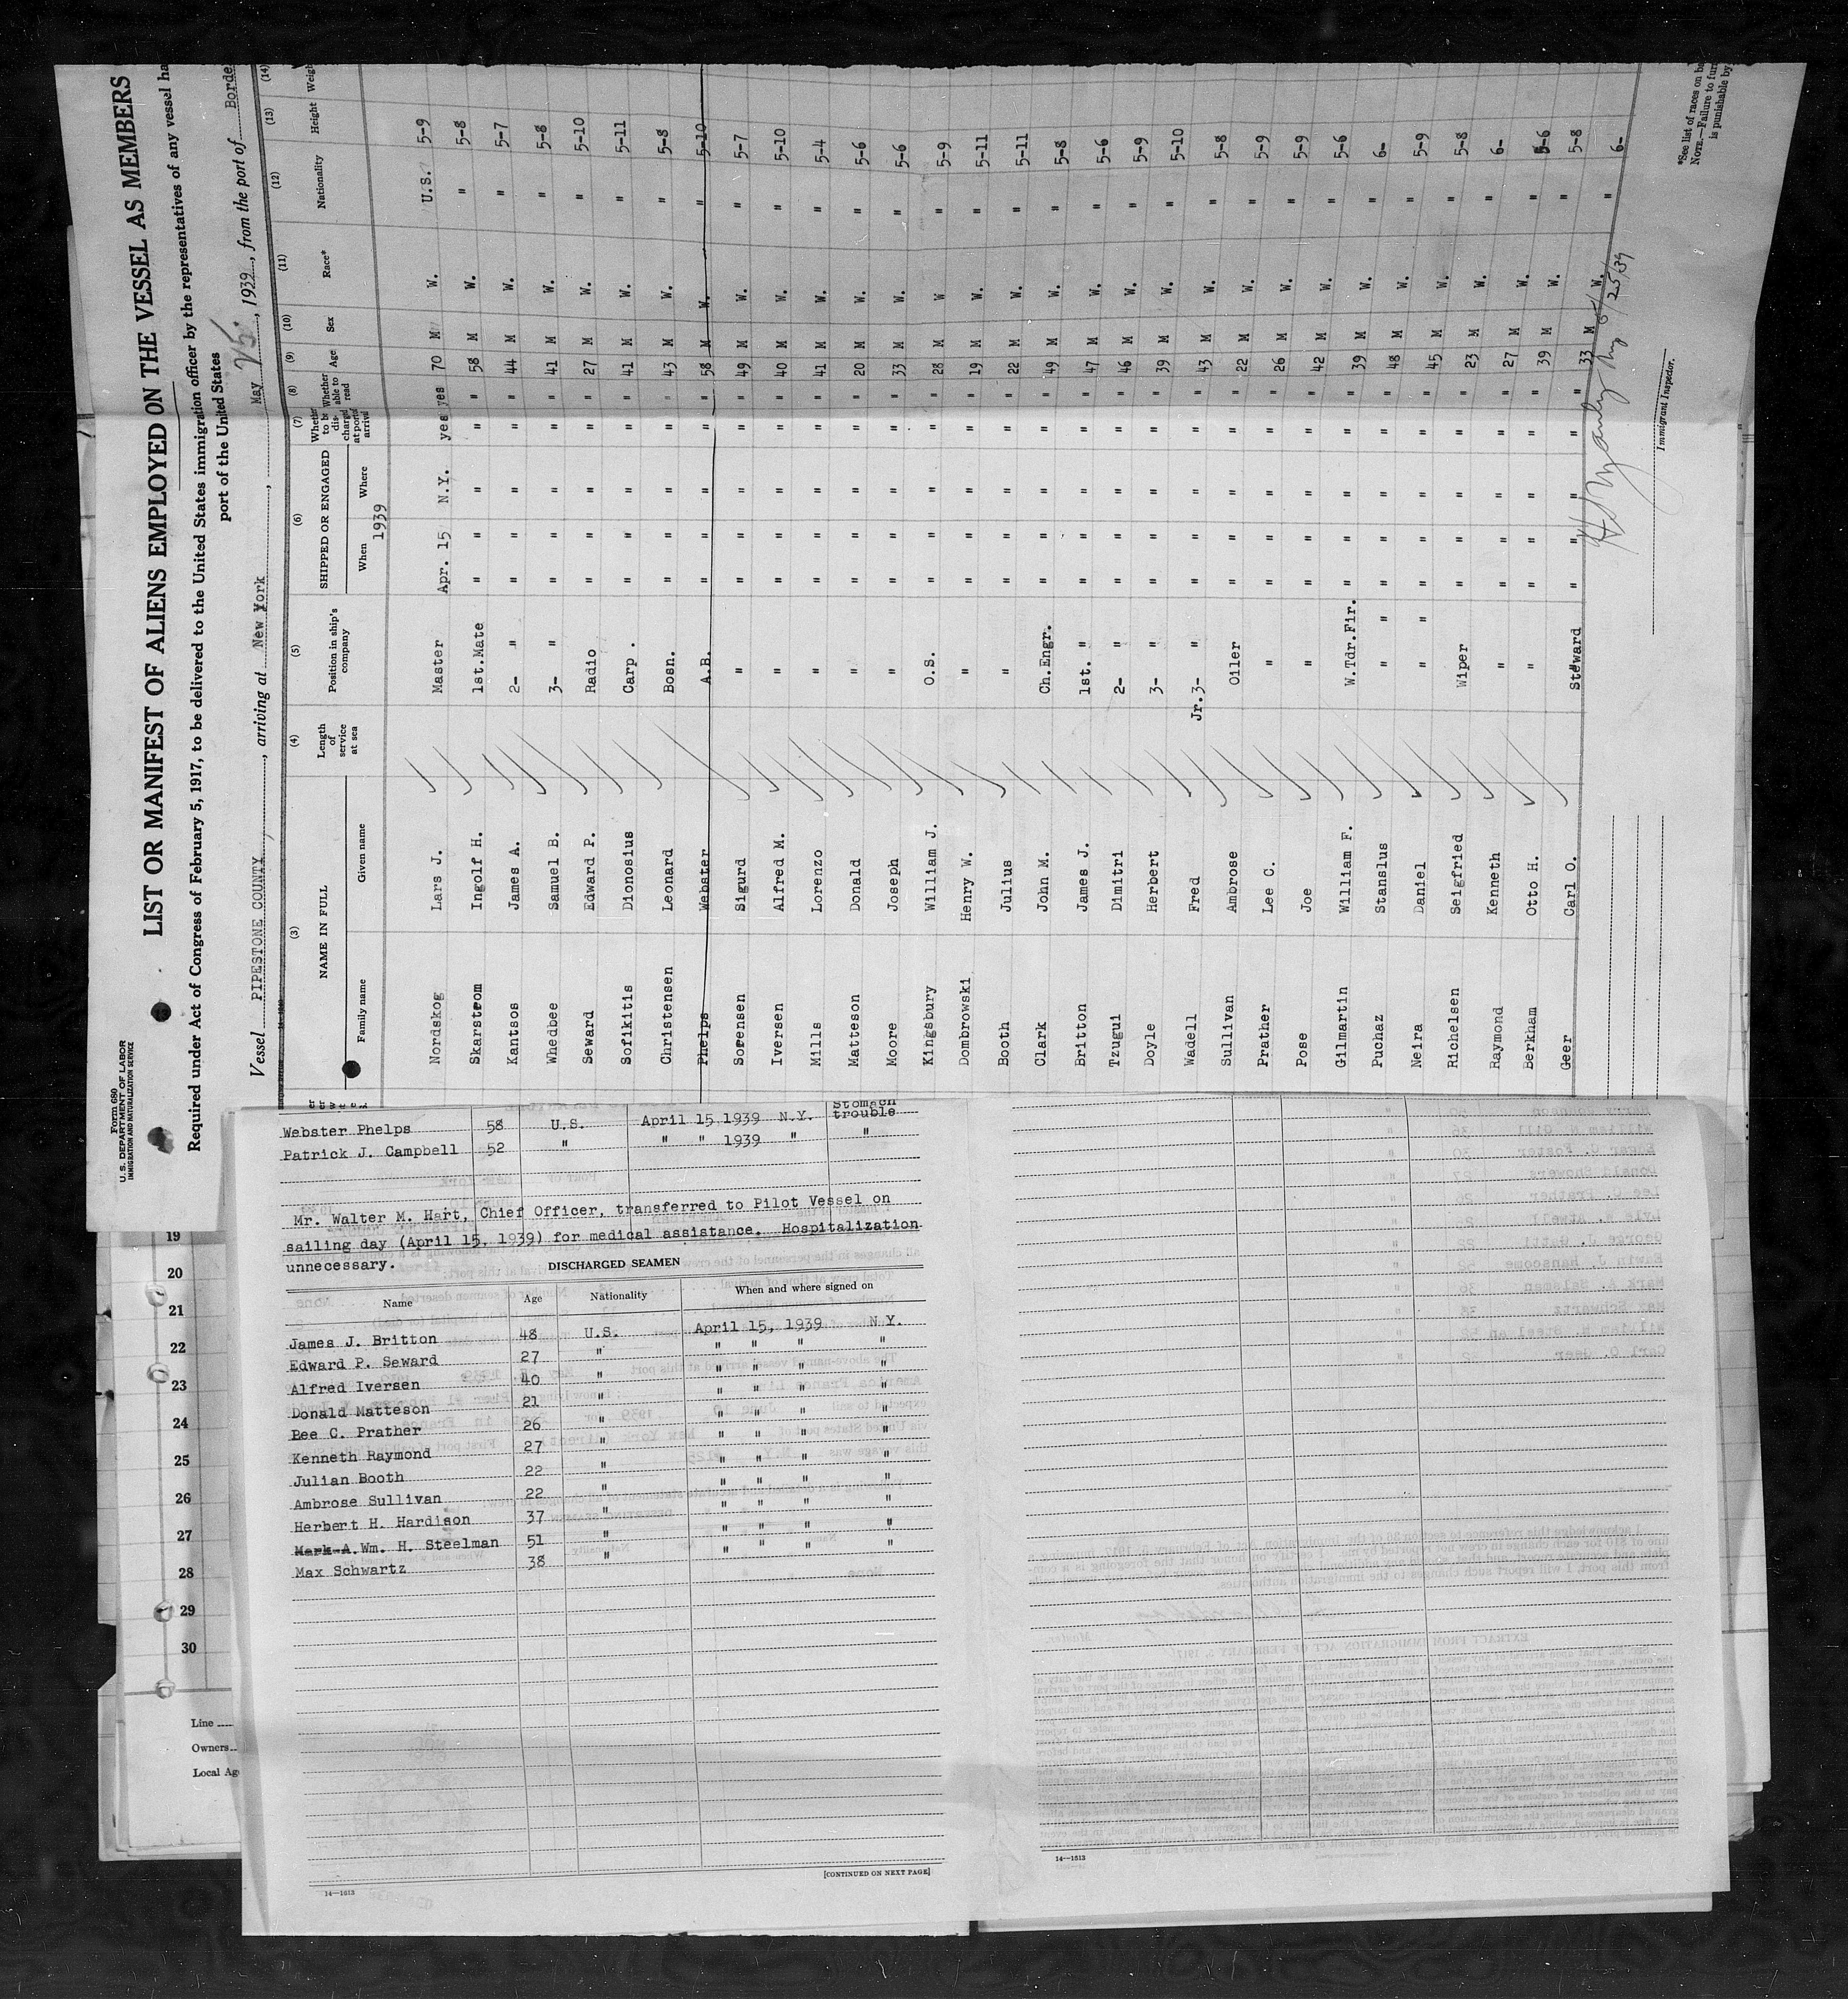 Form 680
U.S. DEPARTMENT OF LABOR
IMMIGRATION AND NATURALIZATION SERVICE
LIST OR MANIFEST OF ALIENS EMPLOYED ON THE VESSEL AS MEMBERS
Required under Act of Congress of February 5, 1917, to be delivered to the United States immigration officer by the representatives of any vessel ha
port of the United States
Vessel PIPESTONE COUNTY, arriving at New York, May 25, 1939, from the port of Borde
(3) (4) (5) (6) (7) (8) (9) (10) (11) (12) (13) (14)
NAME IN FULL Length of service at sea Position in ship's company SHIPPED OR ENGAGED Whether to be discharged at port of arrival Whether able to read Age Sex Race* Nationality Height Weigh
Family name Given name When Where
1939
Nordskog Lars J. Master Apr. 15 N.Y. yes yes 70 M W. U.S. 5-9
Skarstrom Ingolf H. 1st.Mate " " " " " 58 M W. " 5-8
Kantsos James A. 2- " " " " " " 44 M W. " 5-7
Whedbee Samuel B. 3- " " " " " " 41 M W. " 5-8
Seward Edward P. Radio " " " " " 27 M W. " 5-10
Sofikitis Dionosius Carp. " " " " " 41 M W. " 5-11
Christensen Leonard Bosn. " " " " " 43 M W. " 5-8
Phelps Webster A.B. " " " " " 58 M W. " 5-10
Sorensen Sigurd " " " " " " 49 M W. " 5-7
Iversen Alfred M. " " " " " " 40 M W. " 5-10
Mills Lorenzo " " " " " " 41 M W. " 5-4
Matteson Donald " " " " " " 20 M W. " 5-6
Moore Joseph " " " " " " 33 M W. " 5-6
Kingsbury William J. O.S. " " " " " 28 M W " 5-9
Dombrowski Henry W. " " " " " " 19 M W. " 5-11
Booth Julius " " " " " " 22 M W. " 5-11
Clark John M. Ch.Engr. " " " " " 49 M W. " 5-8
Britton James J. 1st. " " " " " " 47 M W. " 5-6
Tzugui Dimitri 2- " " " " " " 46 M W. " 5-9
Doyle Herbert 3- " " " " " " 39 M W. " 5-10
Wadell Fred Jr.3- " " " " " " 43 M W. " 5-8
Sullivan Ambrose Oiler " " " " " 22 M W. " 5-9
Prather Lee C. " " " " " " 26 M W. " 5-9
Pose Joe " " " " " " 42 M W. " 5-6
Gilmartin William F. W.Tdr.Fir. " " " " " 39 M W. " 6-
Puchaz Stanslus " " " " " " 48 M W. " 5-9
Neira Daniel " " " " " " 45 M W. " 5-8
Richelsen Seigfried Wiper " " " " " 23 M W. " 6-
Raymond Kenneth " " " " " " 27 M W. " 5-6
Berkham Otto H. " " " " " " 39 M W. " 5-8
Geer Carl O. Steward " " " " " 33 M W. " 6-
5/25/39
Immigrant Inspector.
*See list of races on ba
NOTE.—Failure to furn
is punishable by
Stomach
Webster Phelps 58 U.S. April 15 1939 N.Y. trouble
Patrick J. Campbell 52 " " " 1939 " "
Mr. Walter M. Hart, Chief Officer, transferred to Pilot Vessel on
sailing day (April 15, 1939) for medical assistance. Hospitalization
unnecessary.
DISCHARGED SEAMEN
Name Age Nationality When and where signed on
James J. Britton 48 U.S. April 15, 1939 N.Y.
Edward P. Seward 27 " " " " "
Alfred Iversen 40 " " " " "
Donald Matteson 21 " " " " "
Lee C. Prather 26 " " " " "
Kenneth Raymond 27 " " " " "
Julian Booth 22 " " " " "
Ambrose Sullivan 22 " " " " "
Herbert H. Hardison 37 " " " " "
Mark A. Wm. H. Steelman 51 " " " " "
Max Schwartz 38 " " " " "
[CONTINUED ON NEXT PAGE]
14—1613
14—1613
19
20
21
22
23
24
25
26
27
28
29
30
Line
Owners
Local Ag